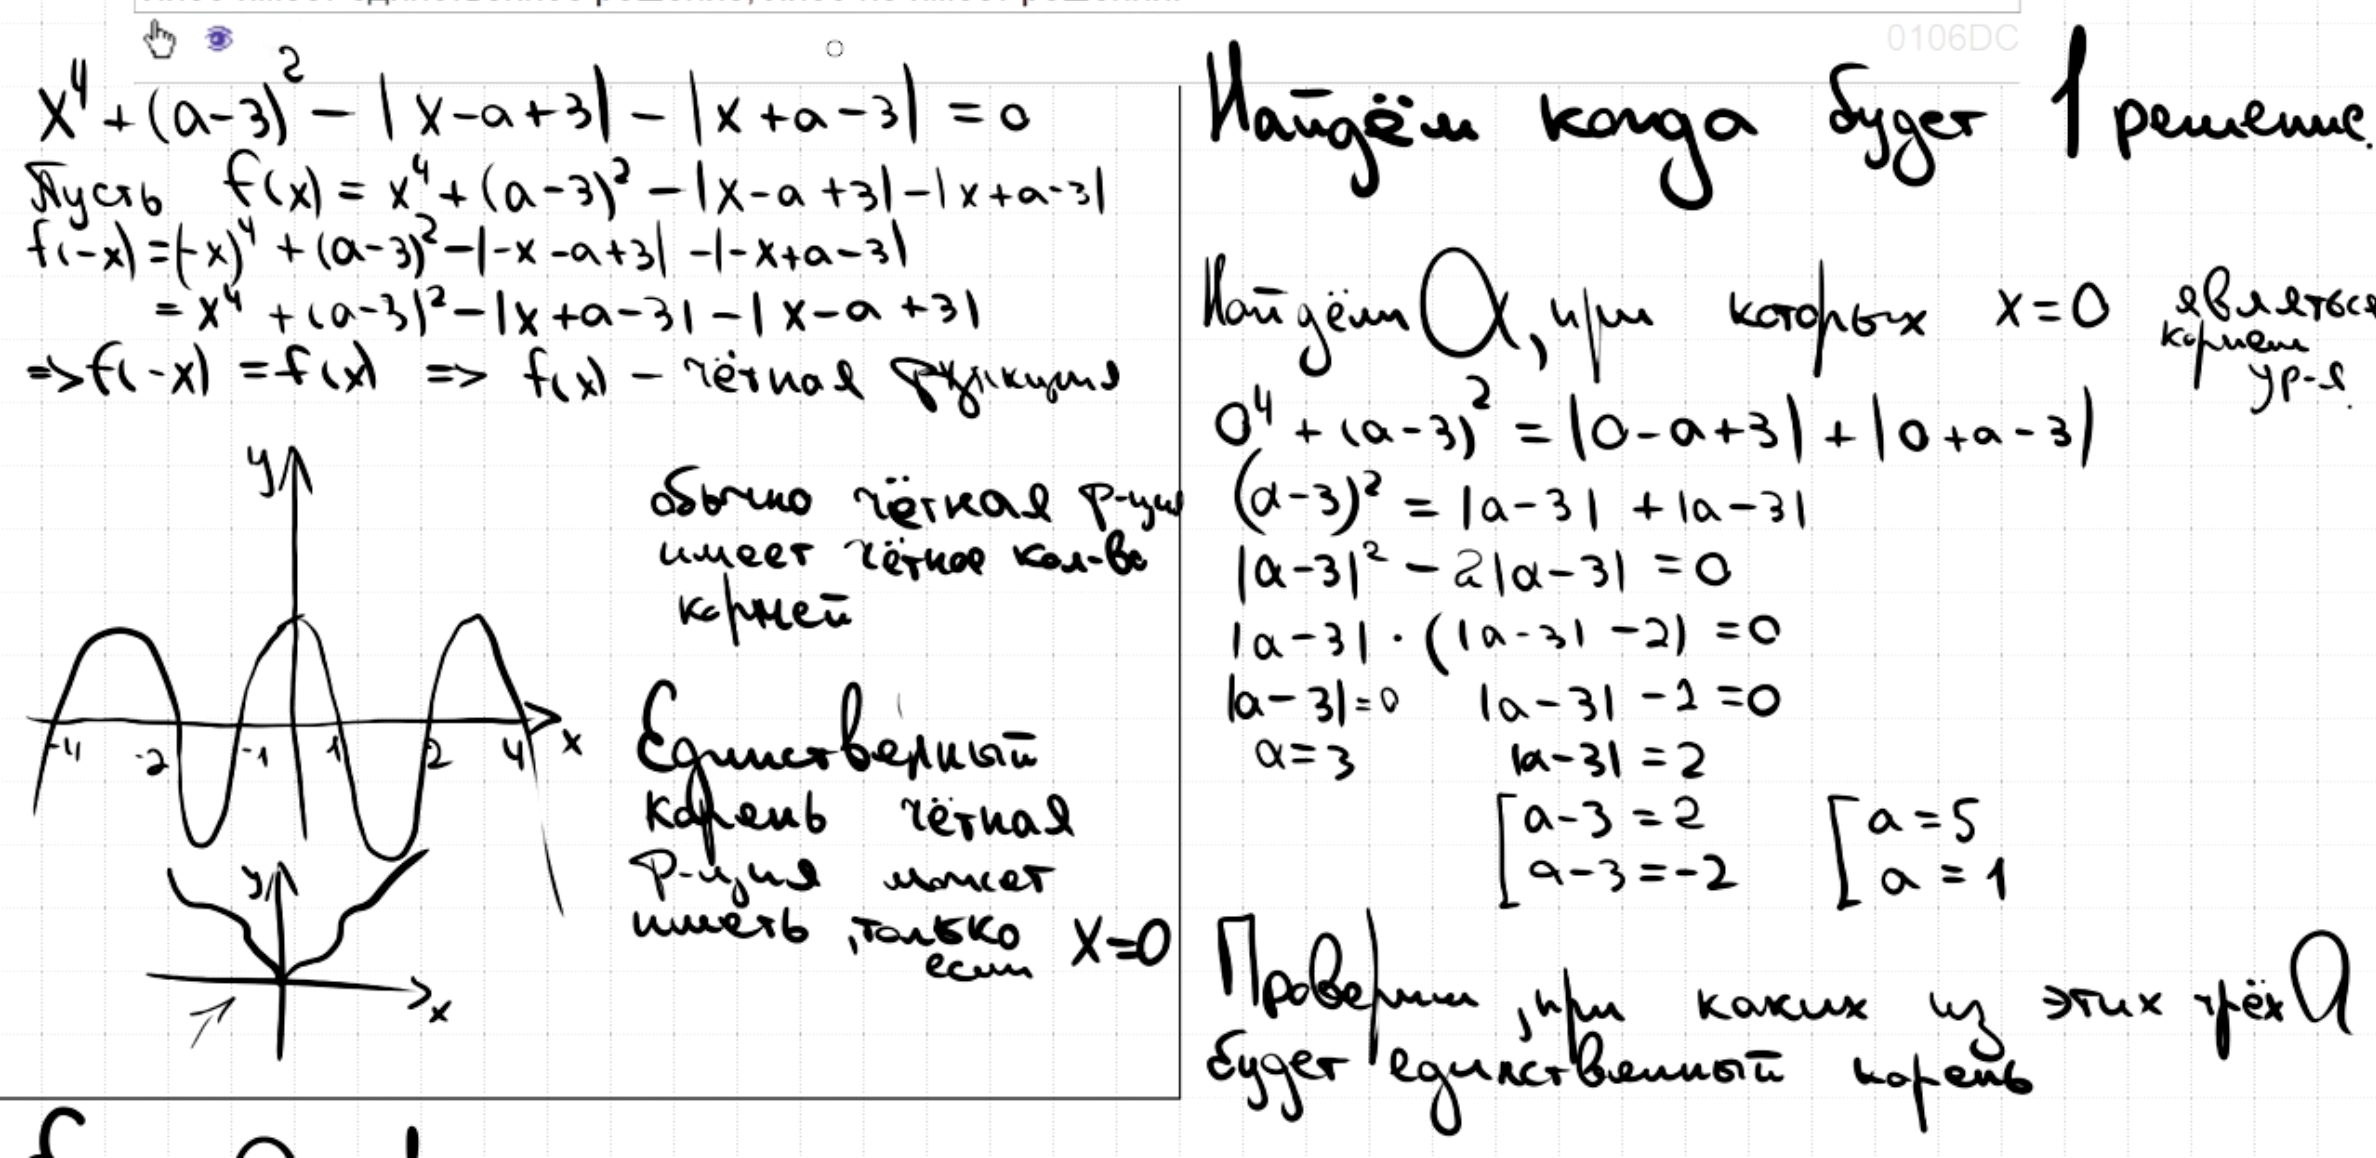 0106DC
x⁴ + (a-3)² - |x-a+3| - |x+a-3| = 0
Пусть f(x) = x⁴ + (a-3)² - |x-a+3| - |x+a-3|
f(-x) = (-x)⁴ + (a-3)² - |-x-a+3| - |-x+a-3|
= x⁴ + (a-3)² - |x+a-3| - |x-a+3|
=> f(-x) = f(x) => f(x) - чётная функция
обычно чётная ф-ция
имеет чётное кол-во
корней
y
-4 -2 -1 1 2 4 x
Единственный
корень чётная
ф-ция может
иметь, только
если x=0
y
x
Найдём когда будет 1 решение.
Найдём a, при которых x=0 являться
корнем
ур-я.
0⁴ + (a-3)² = |0-a+3| + |0+a-3|
(a-3)² = |a-3| + |a-3|
|a-3|² - 2|a-3| = 0
|a-3| · (|a-3| - 2) = 0
|a-3| = 0 |a-3| - 2 = 0
a = 3 |a-3| = 2
[ a-3 = 2 [ a = 5
a-3 = -2 a = 1
Проверим, при каких из этих трёх a
будет единственный корень